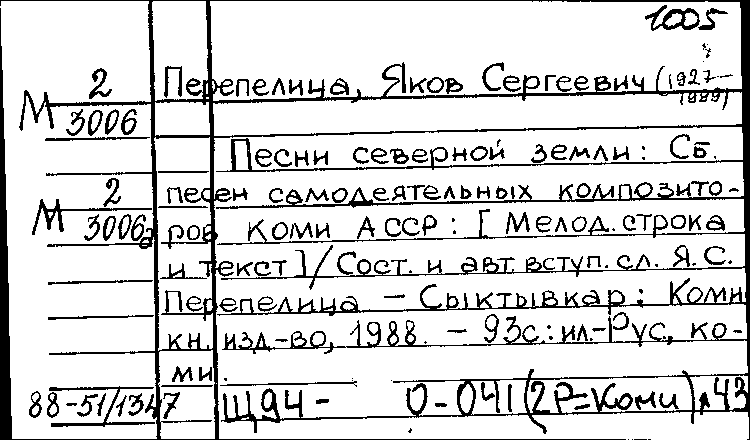 1005
М 2/3006 Перепелица, Яков Сергеевич (1927-
1989)
Песни северной земли: Сб.
М 2/3006а песен самодеятельных композито-
ров Коми АССР: [Мелод. строка
и текст]/Сост. и авт. вступ. сл. Я.С.
Перепелица – Сыктывкар: Коми
кн. изд-во, 1988. – 93с.: ил.-Рус, ко-
ми.
88-51/1347 Щ94- 0-041(2Р=Коми)я43